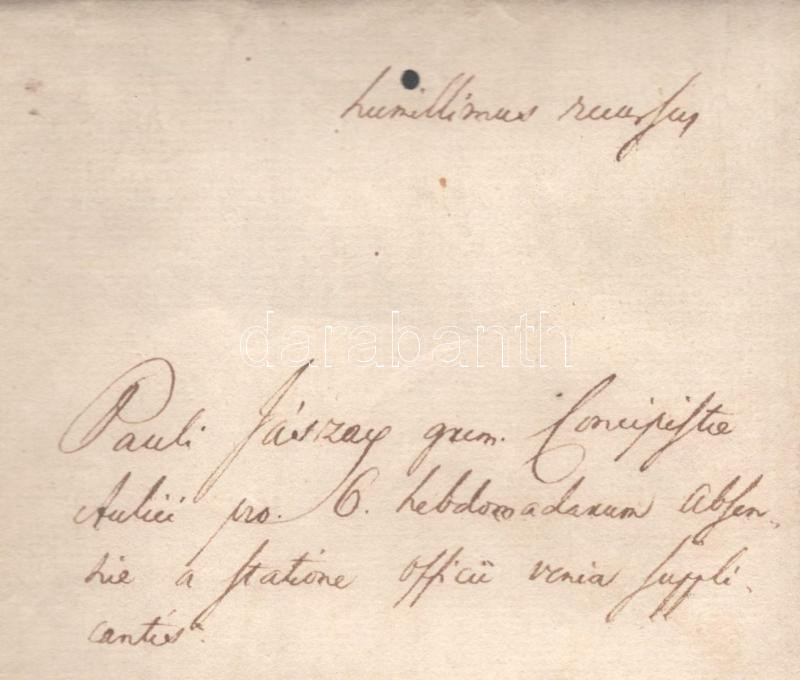 humillimus recursus
darabanth
Pauli Jászay grem. Concipistæ
Aulici pro. 6. hebdomadarum absen-
tiæ a statione officii venia suppli-
cantis.